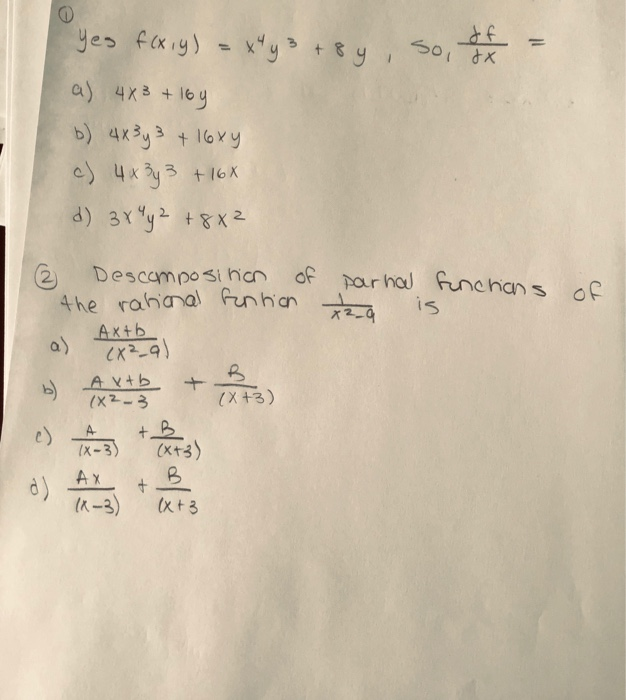 ①
yes f(x,y) = x⁴y³ + 8y, so, ∂f/∂x =
a) 4x³ + 16y
b) 4x³y³ + 16xy
c) 4x³y³ + 16x
d) 3x⁴y² + 8x²
② Descomposition of partial functions of
the rational funtion 1/x²-9 is
a) Ax+b/(x²-9)
b) Ax+b/(x²-3 + B/(x+3)
c) A/(x-3) + B/(x+3)
d) Ax/(x-3) + B/(x+3